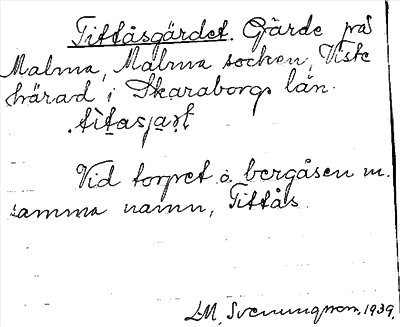 Tittåsgärdet. Gärde på
Malma, Malma socken, Viste
härad i Skaraborgs län.
Vid torpet o. bergåsen m.
samma namn, Tittås.
1939.